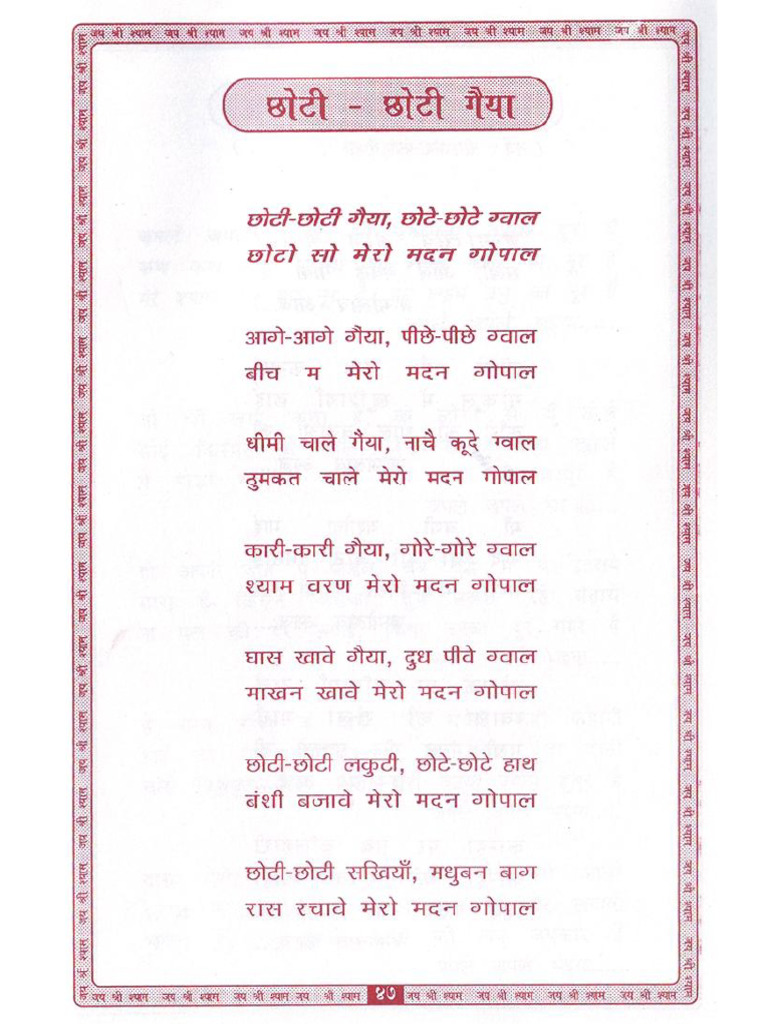 जय श्री श्याम जय श्री श्याम जय श्री श्याम जय श्री श्याम जय श्री श्याम जय श्री श्याम जय श्री श्याम जय श्री श्याम
छोटी - छोटी गैया
छोटी-छोटी गैया, छोटे-छोटे ग्वाल
छोटो सो मेरो मदन गोपाल
आगे-आगे गैया, पीछे-पीछे ग्वाल
बीच म मेरो मदन गोपाल
धीमी चाले गैया, नाचै कूदे ग्वाल
ठुमकत चाले मेरो मदन गोपाल
कारी-कारी गैया, गोरे-गोरे ग्वाल
श्याम वरण मेरो मदन गोपाल
घास खावे गैया, दुध पीवे ग्वाल
माखन खावे मेरो मदन गोपाल
छोटी-छोटी लकुटी, छोटे-छोटे हाथ
बंशी बजावे मेरो मदन गोपाल
छोटी-छोटी सखियाँ, मधुबन बाग
रास रचावे मेरो मदन गोपाल
जय श्री श्याम जय श्री श्याम जय श्री श्याम जय श्री श्याम ४७ जय श्री श्याम जय श्री श्याम जय श्री श्याम जय श्री श्याम